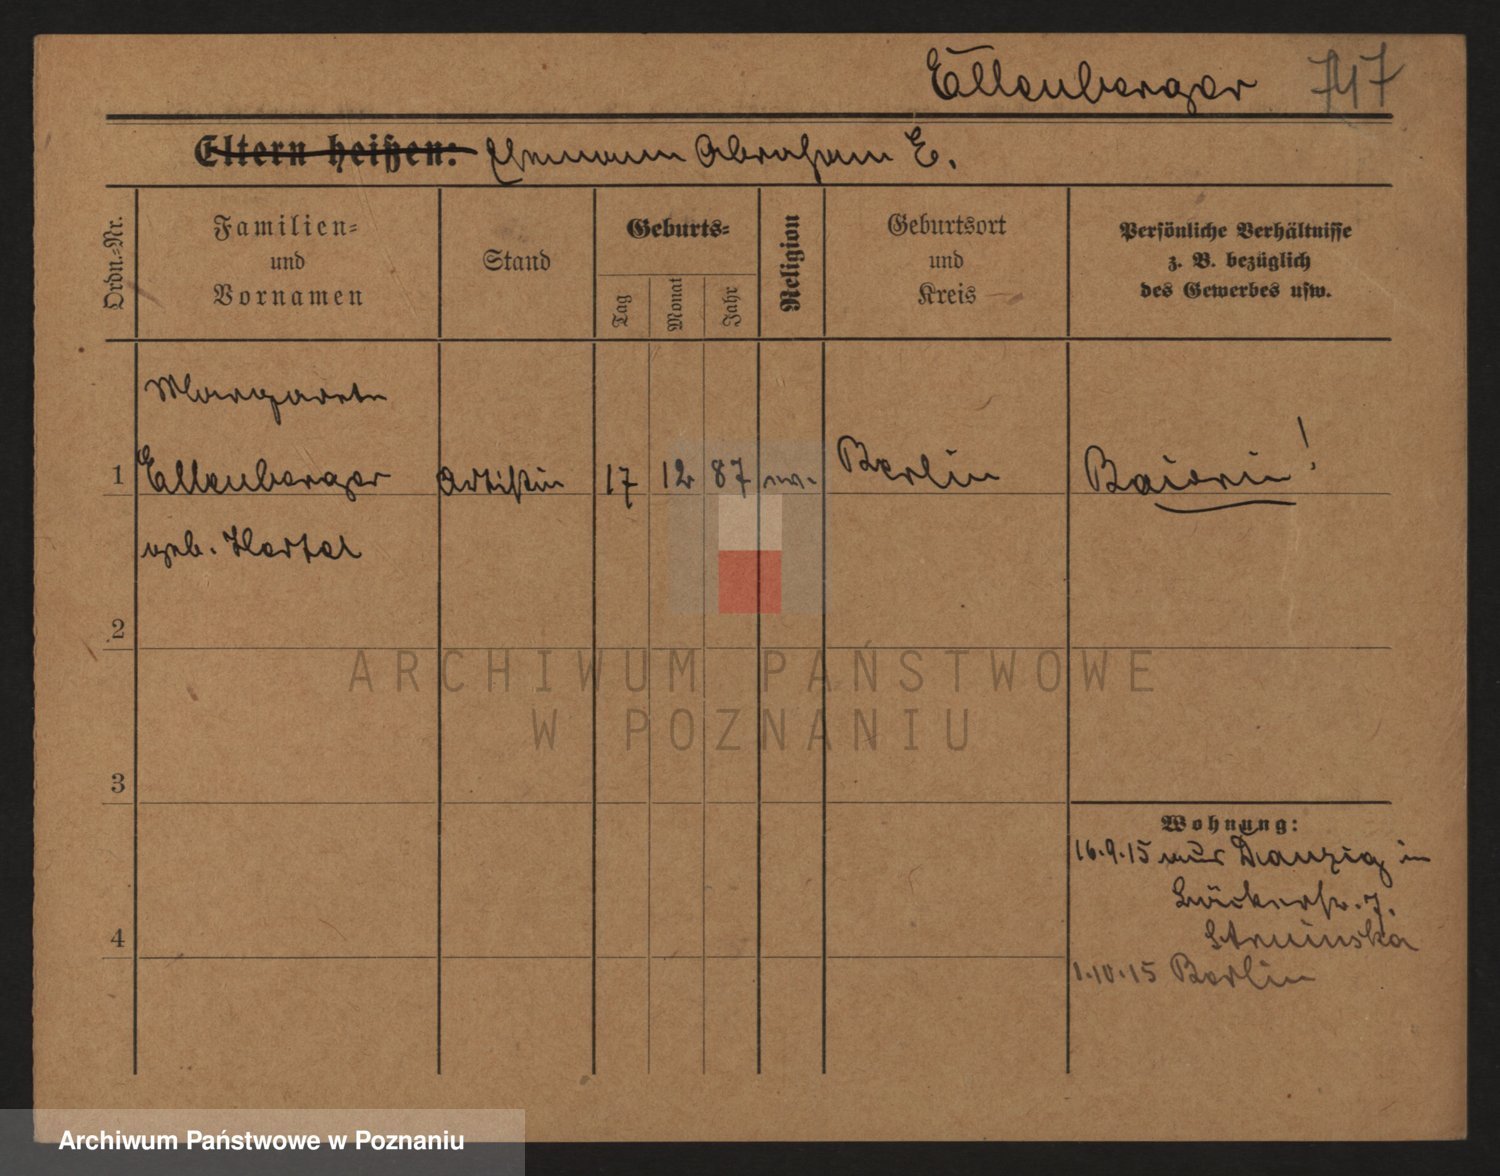 Ellenberger 747
Eltern heißen: Ehemann Abraham E.
Ordn.-Nr.
Familien-
und
Vornamen
Stand
Geburts-
Tag
Monat
Jahr
Religion
Geburtsort
und
Kreis
Persönliche Verhältnisse
z. B. bezüglich
des Gewerbes usw.
Margarete
1 Ellenberger Artistin 17 12 87 Berlin Baierin!
geb.
2
3
4
Wohnung:
16.9.15 aus Danzig in
Bäckerstr. 7.
Struinska
1.10.15 Berlin
ARCHIWUM PAŃSTWOWE
W POZNANIU
Archiwum Państwowe w Poznaniu